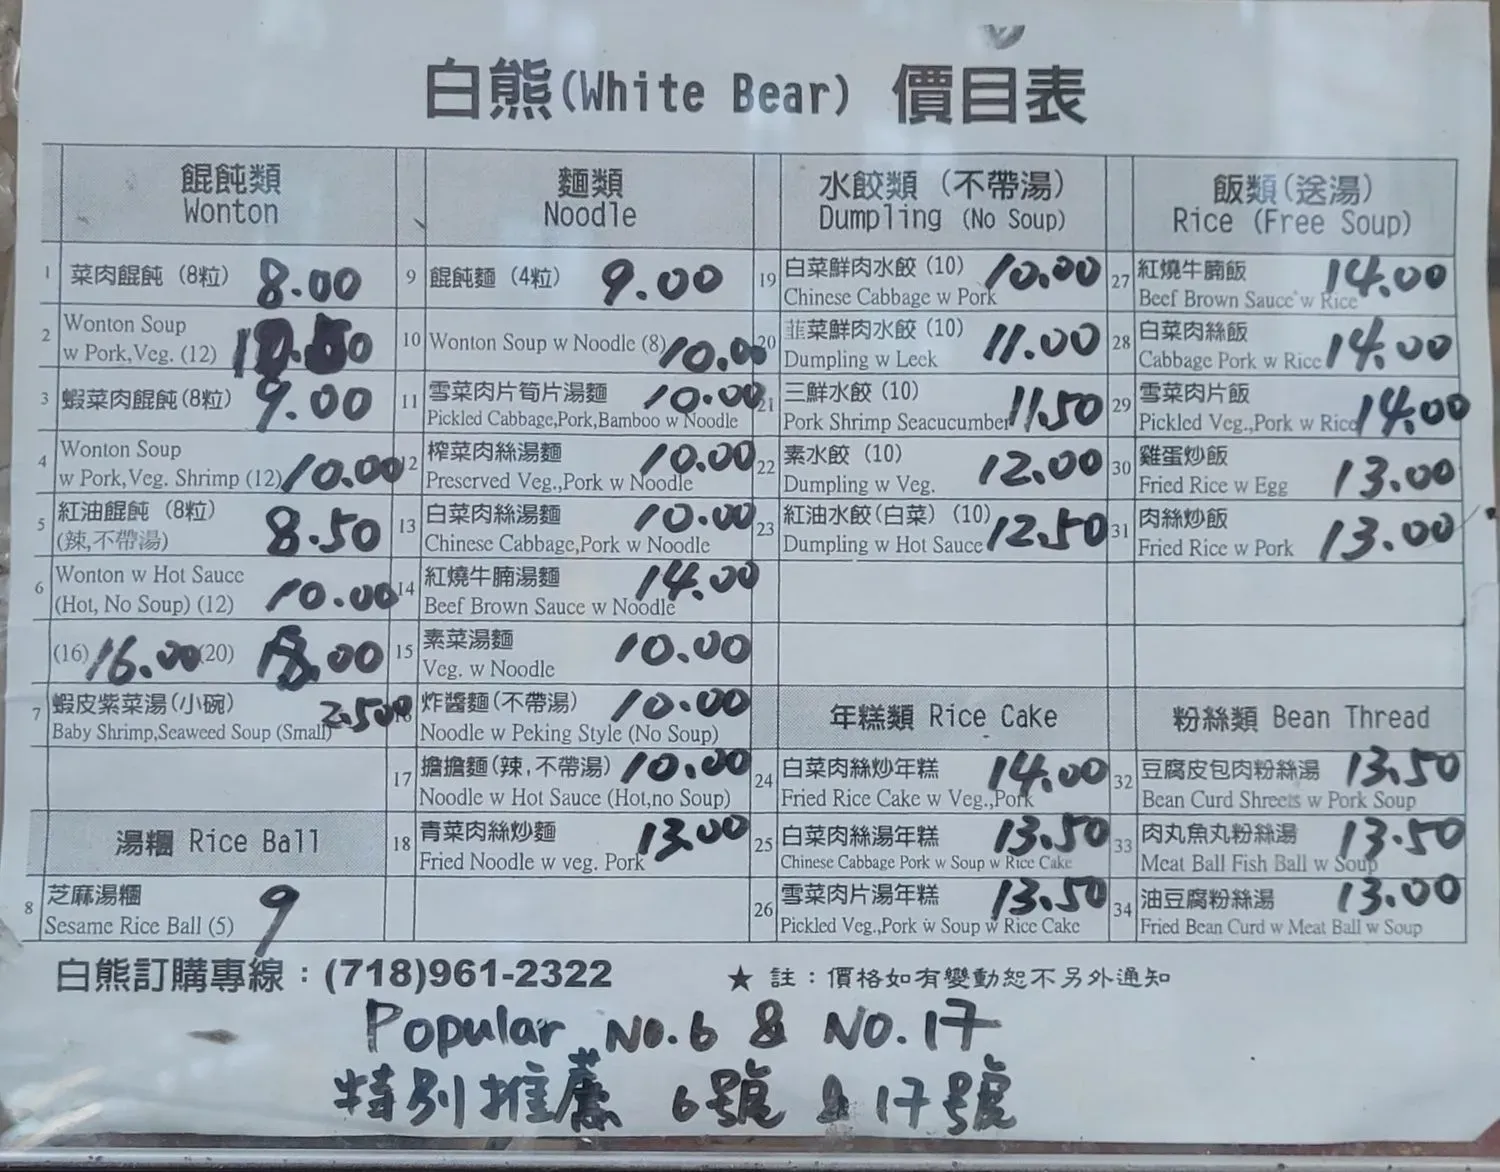 白熊(White Bear) 價目表
餛飩類
Wonton
1 菜肉餛飩 (8粒) 8.00
2 Wonton Soup
w Pork,Veg. (12)
3 蝦菜肉餛飩(8粒) 9.00
4 Wonton Soup
w Pork,Veg. Shrimp (12) 10.00
5 紅油餛飩 (8粒) 8.50
(辣,不帶湯)
6 Wonton w Hot Sauce
(Hot, No Soup) (12) 10.00
(16) 16.00 (20) 18.00
7 蝦皮紫菜湯(小碗) 2.50
Baby Shrimp,Seaweed Soup (Small)
湯糰 Rice Ball
8 芝麻湯糰 9
Sesame Rice Ball (5)
麵類
Noodle
9 餛飩麵 (4粒) 9.00
10 Wonton Soup w Noodle (8) 10.00
11 雪菜肉片筍片湯麵 10.00
Pickled Cabbage,Pork,Bamboo w Noodle
12 榨菜肉絲湯麵 10.00
Preserved Veg.,Pork w Noodle
13 白菜肉絲湯麵 10.00
Chinese Cabbage,Pork w Noodle
14 紅燒牛腩湯麵 14.00
Beef Brown Sauce w Noodle
15 素菜湯麵 10.00
Veg. w Noodle
16 炸醬麵(不帶湯) 10.00
Noodle w Peking Style (No Soup)
17 擔擔麵(辣,不帶湯) 10.00
Noodle w Hot Sauce (Hot,no Soup)
18 青菜肉絲炒麵 13.00
Fried Noodle w veg. Pork
水餃類 (不帶湯)
Dumpling (No Soup)
19 白菜鮮肉水餃 (10) 10.00
Chinese Cabbage w Pork
20 韮菜鮮肉水餃 (10) 11.00
Dumpling w Leek
21 三鮮水餃 (10) 11.50
Pork Shrimp Seacucumber
22 素水餃 (10) 12.00
Dumpling w Veg.
23 紅油水餃(白菜) (10) 12.50
Dumpling w Hot Sauce
年糕類 Rice Cake
24 白菜肉絲炒年糕 14.00
Fried Rice Cake w Veg.,Pork
25 白菜肉絲湯年糕 13.50
Chinese Cabbage Pork w Soup w Rice Cake
26 雪菜肉片湯年糕 13.50
Pickled Veg.,Pork w Soup w Rice Cake
飯類(送湯)
Rice (Free Soup)
27 紅燒牛腩飯 14.00
Beef Brown Sauce w Rice
28 白菜肉絲飯 14.00
Cabbage Pork w Rice
29 雪菜肉片飯 14.00
Pickled Veg.,Pork w Rice
30 雞蛋炒飯 13.00
Fried Rice w Egg
31 肉絲炒飯 13.00
Fried Rice w Pork
粉絲類 Bean Thread
32 豆腐皮包肉粉絲湯 13.50
Bean Curd Shreets w Pork Soup
33 肉丸魚丸粉絲湯 13.50
Meat Ball Fish Ball w Soup
34 油豆腐粉絲湯 13.00
Fried Bean Curd w Meat Ball w Soup
白熊訂購專線：(718)961-2322
★ 註：價格如有變動恕不另外通知
Popular NO.6 & NO.17
特別推薦 6號 & 17號